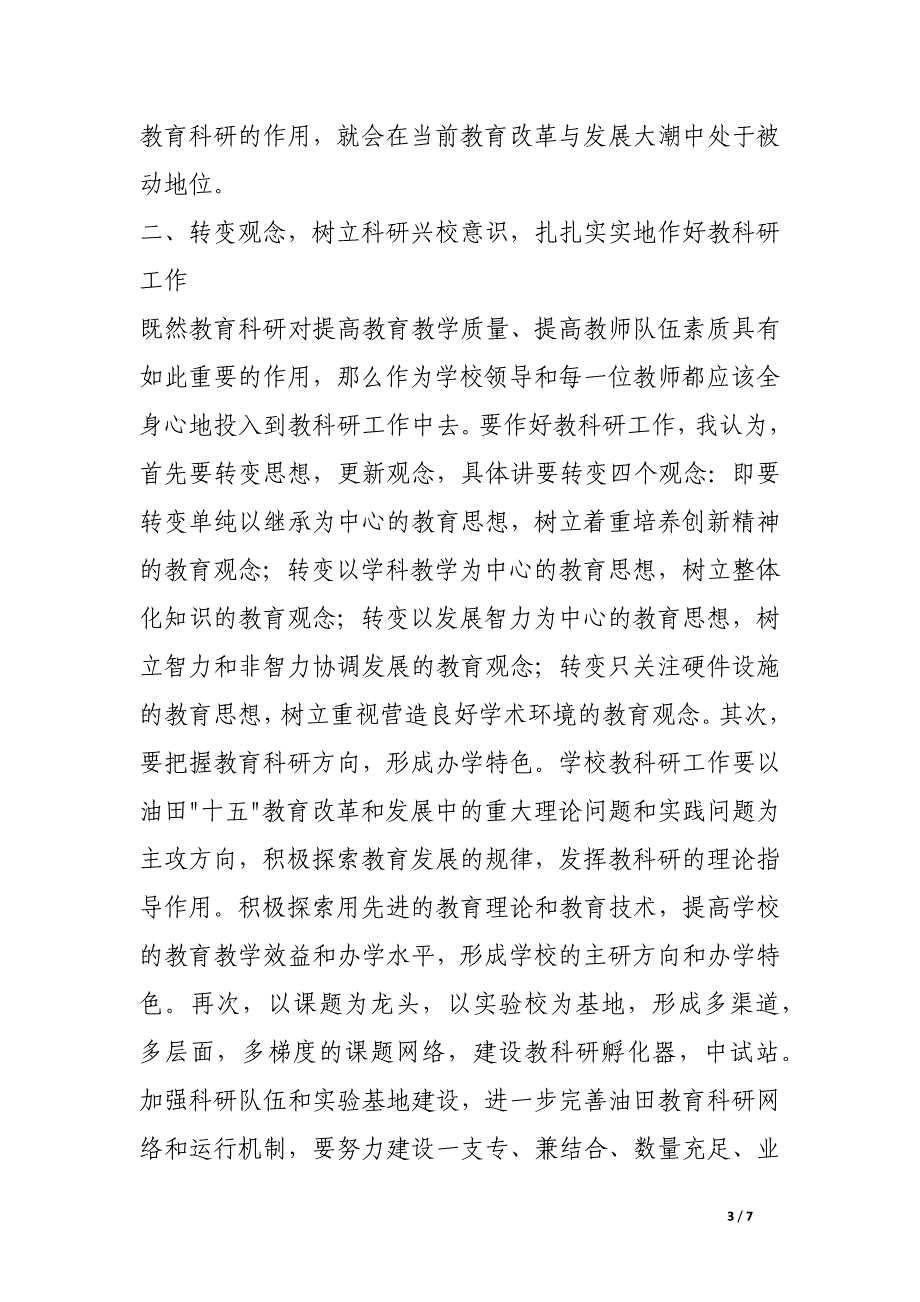 教育科研的作用，就会在当前教育改革与发展大潮中处于被
动地位。
二、转变观念，树立科研兴校意识，扎扎实实地作好教科研
工作
既然教育科研对提高教育教学质量、提高教师队伍素质具有
如此重要的作用，那么作为学校领导和每一位教师都应该全
身心地投入到教科研工作中去。要作好教科研工作，我认为，
首先要转变思想，更新观念，具体讲要转变四个观念：即要
转变单纯以继承为中心的教育思想，树立着重培养创新精神
的教育观念；转变以学科教学为中心的教育思想，树立整体
化知识的教育观念；转变以发展智力为中心的教育思想，树
立智力和非智力协调发展的教育观念；转变只关注硬件设施
的教育思想，树立重视营造良好学术环境的教育观念。其次，
要把握教育科研方向，形成办学特色。学校教科研工作要以
油田"十五"教育改革和发展中的重大理论问题和实践问题为
主攻方向，积极探索教育发展的规律，发挥教科研的理论指
导作用。积极探索用先进的教育理论和教育技术，提高学校
的教育教学效益和办学水平，形成学校的主研方向和办学特
色。再次，以课题为龙头，以实验校为基地，形成多渠道，
多层面，多梯度的课题网络，建设教科研孵化器，中试站。
加强科研队伍和实验基地建设，进一步完善油田教育科研网
络和运行机制，要努力建设一支专、兼结合、数量充足、业
3 / 7